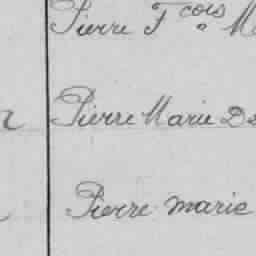 Pierre Fçois M
Pierre Marie De
Pierre Marie